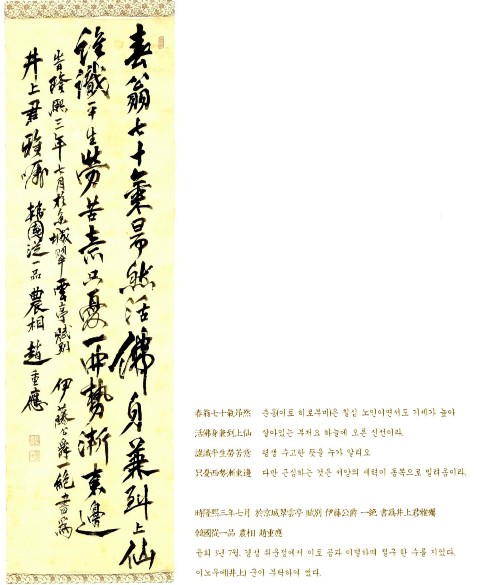 春翁七十氣昂然活佛身兼到上仙
誰識平生勞苦意只憂西勢漸東邊
時隆熙三年七月於京城翠雲亭賦別 伊藤公爵一絶書爲
井上君雅囑 韓國從一品 農相 趙重應
春翁七十氣昂然 춘옹(이토 히로부미)은 칠십 노인이면서도 기세가 높아
活佛身兼到上仙 살아있는 부처요 하늘에 오른 신선이라.
誰識平生勞苦意 평생 수고한 뜻을 누가 알리오
只憂西勢漸東邊 다만 근심하는 것은 서양의 세력이 동쪽으로 밀려옴이라.
時隆熙三年七月 於京城翠雲亭 賦別 伊藤公爵 一絶 書爲井上君雅囑
韓國從一品 農相 趙重應
융희 3년 7월, 경성 취운정에서 이토 공과 이별하며 절구 한 수를 지었다.
이노우에(井上) 군이 부탁하여 썼다.